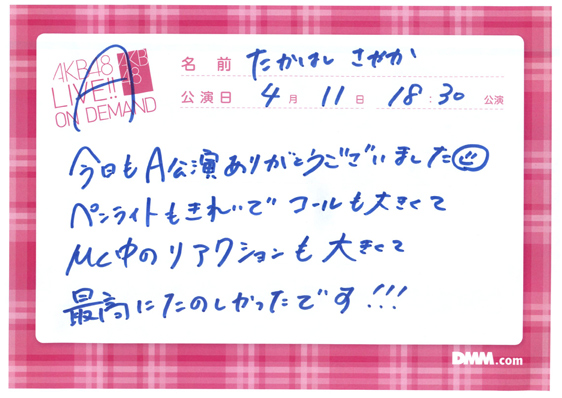 AKB48
LIVE!!
ON DEMAND
AKB
48
A
名前 たかはし さやか
公演日 4月 11日 18:30 公演
今日もA公演ありがとうございました
ペンライトもきれいで コールも大きくて
MC中のリアクションも 大きくて
最高にたのしかったです!!!
DMM.com